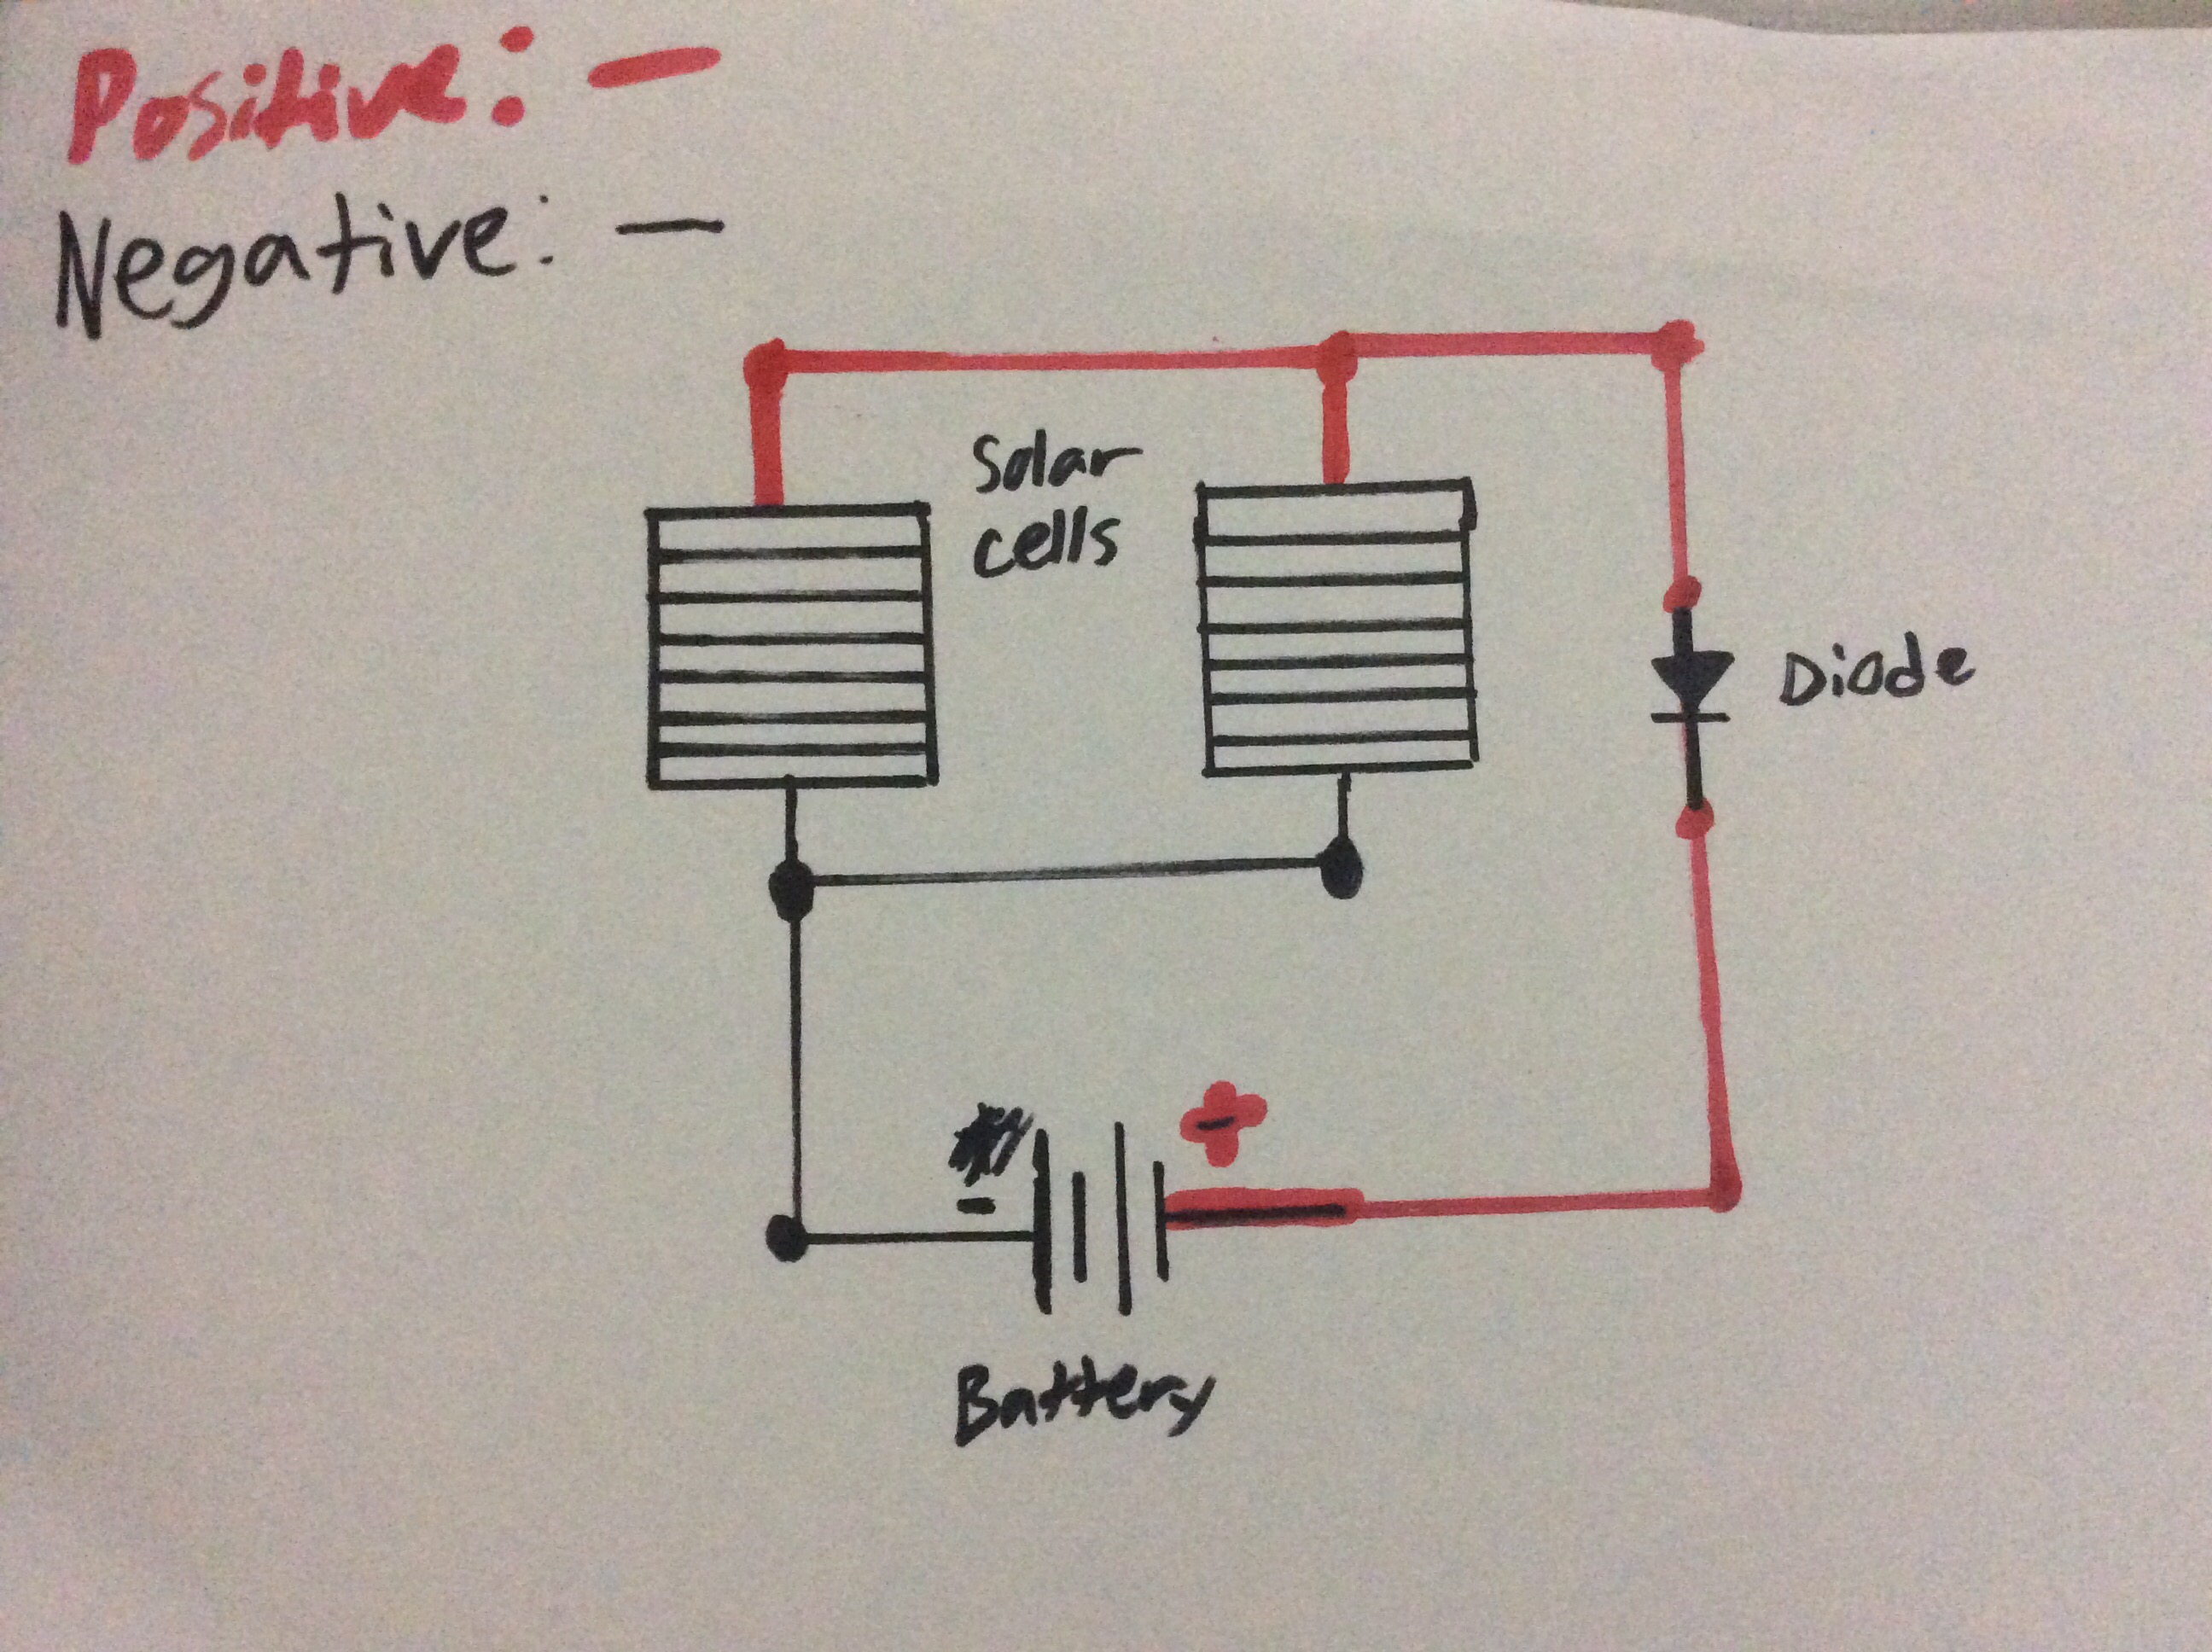 Positive: -
Negative: -
Solar
cells
Diode
+
-
Battery